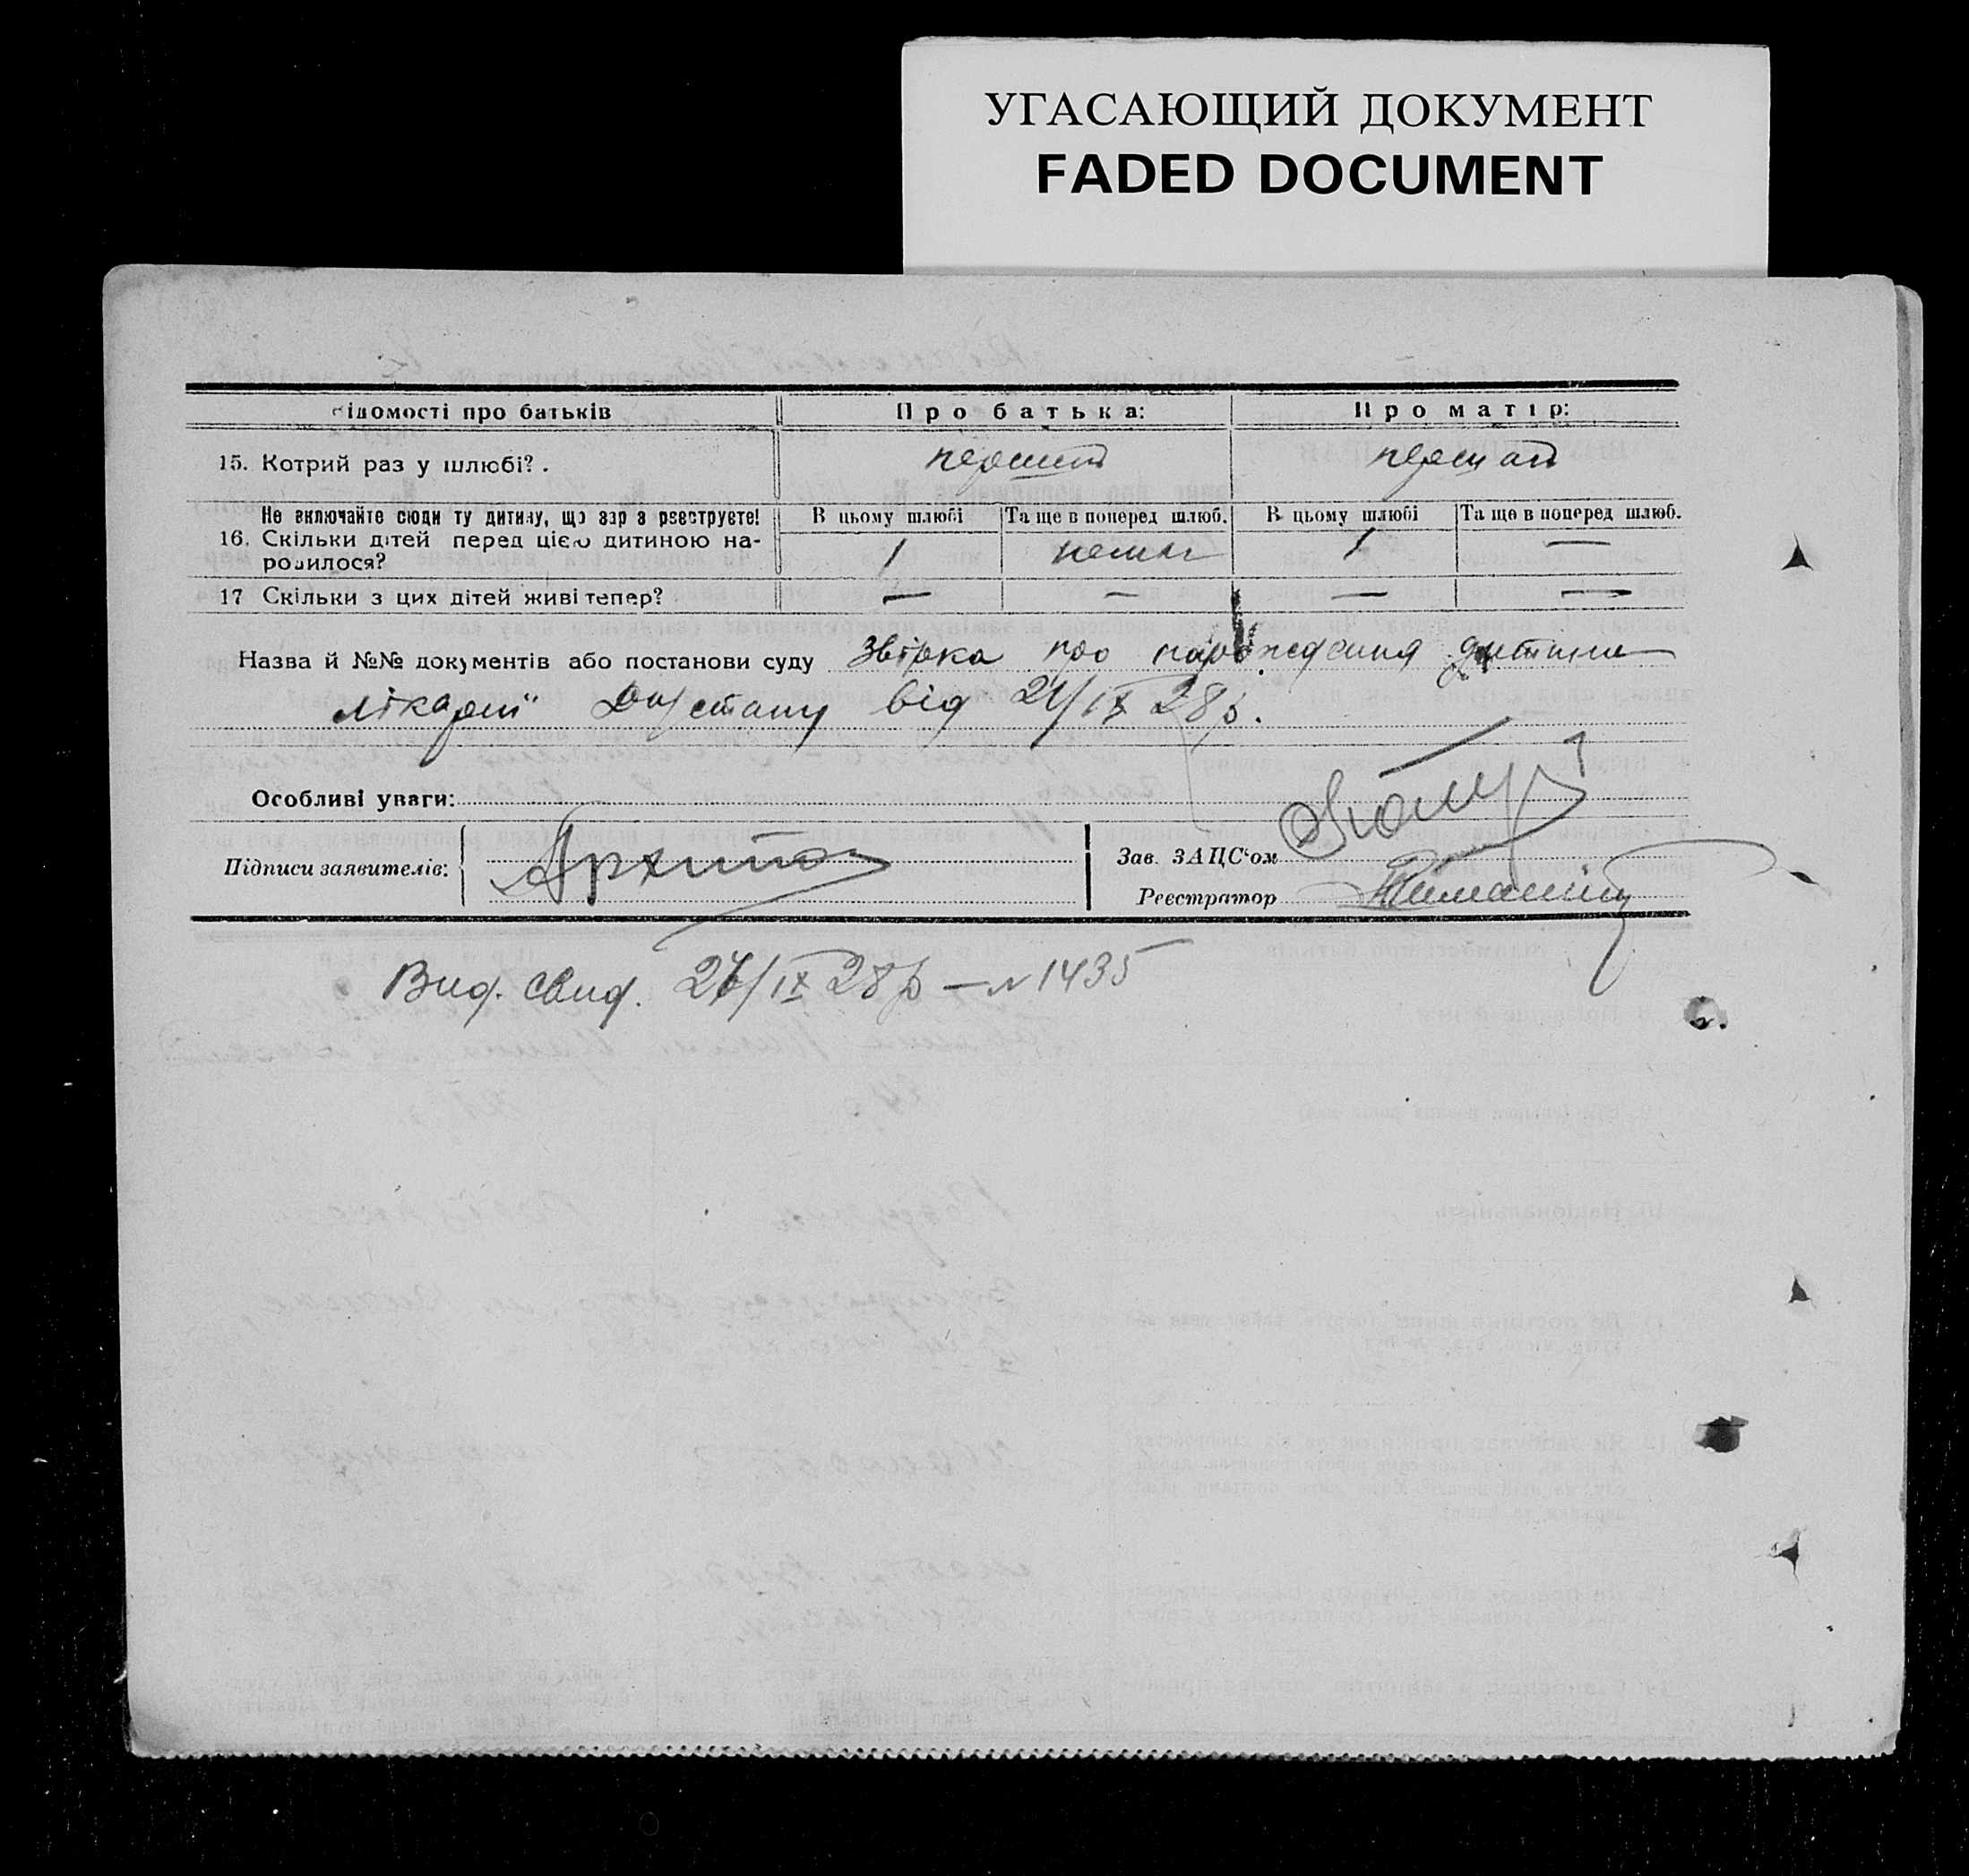 УГАСАЮЩИЙ ДОКУМЕНТ
FADED DOCUMENT
ідомості про батьків Про батька: Про матір:
15. Котрий раз у шлюбі? . перший перший
Не включайте сюди ту дитину, що зараз реєструєте! В цьому шлюбі Та ще в поперед шлюб. В цьому шлюбі Та ще в поперед шлюб.
16. Скільки дітей перед цією дитиною на- 1 немає 1 —
родилося?
17 Скільки з цих дітей живі тепер? — — — —
Назва й №№ документів або постанови суду Звірка про народження дитини
лікарні від 24/IX 28р.
Особливі уваги:
Підписи заявителів: Зав. ЗАЦС'ом
Реєстратор
Вид. свид. 24/IX 28р — № 1435